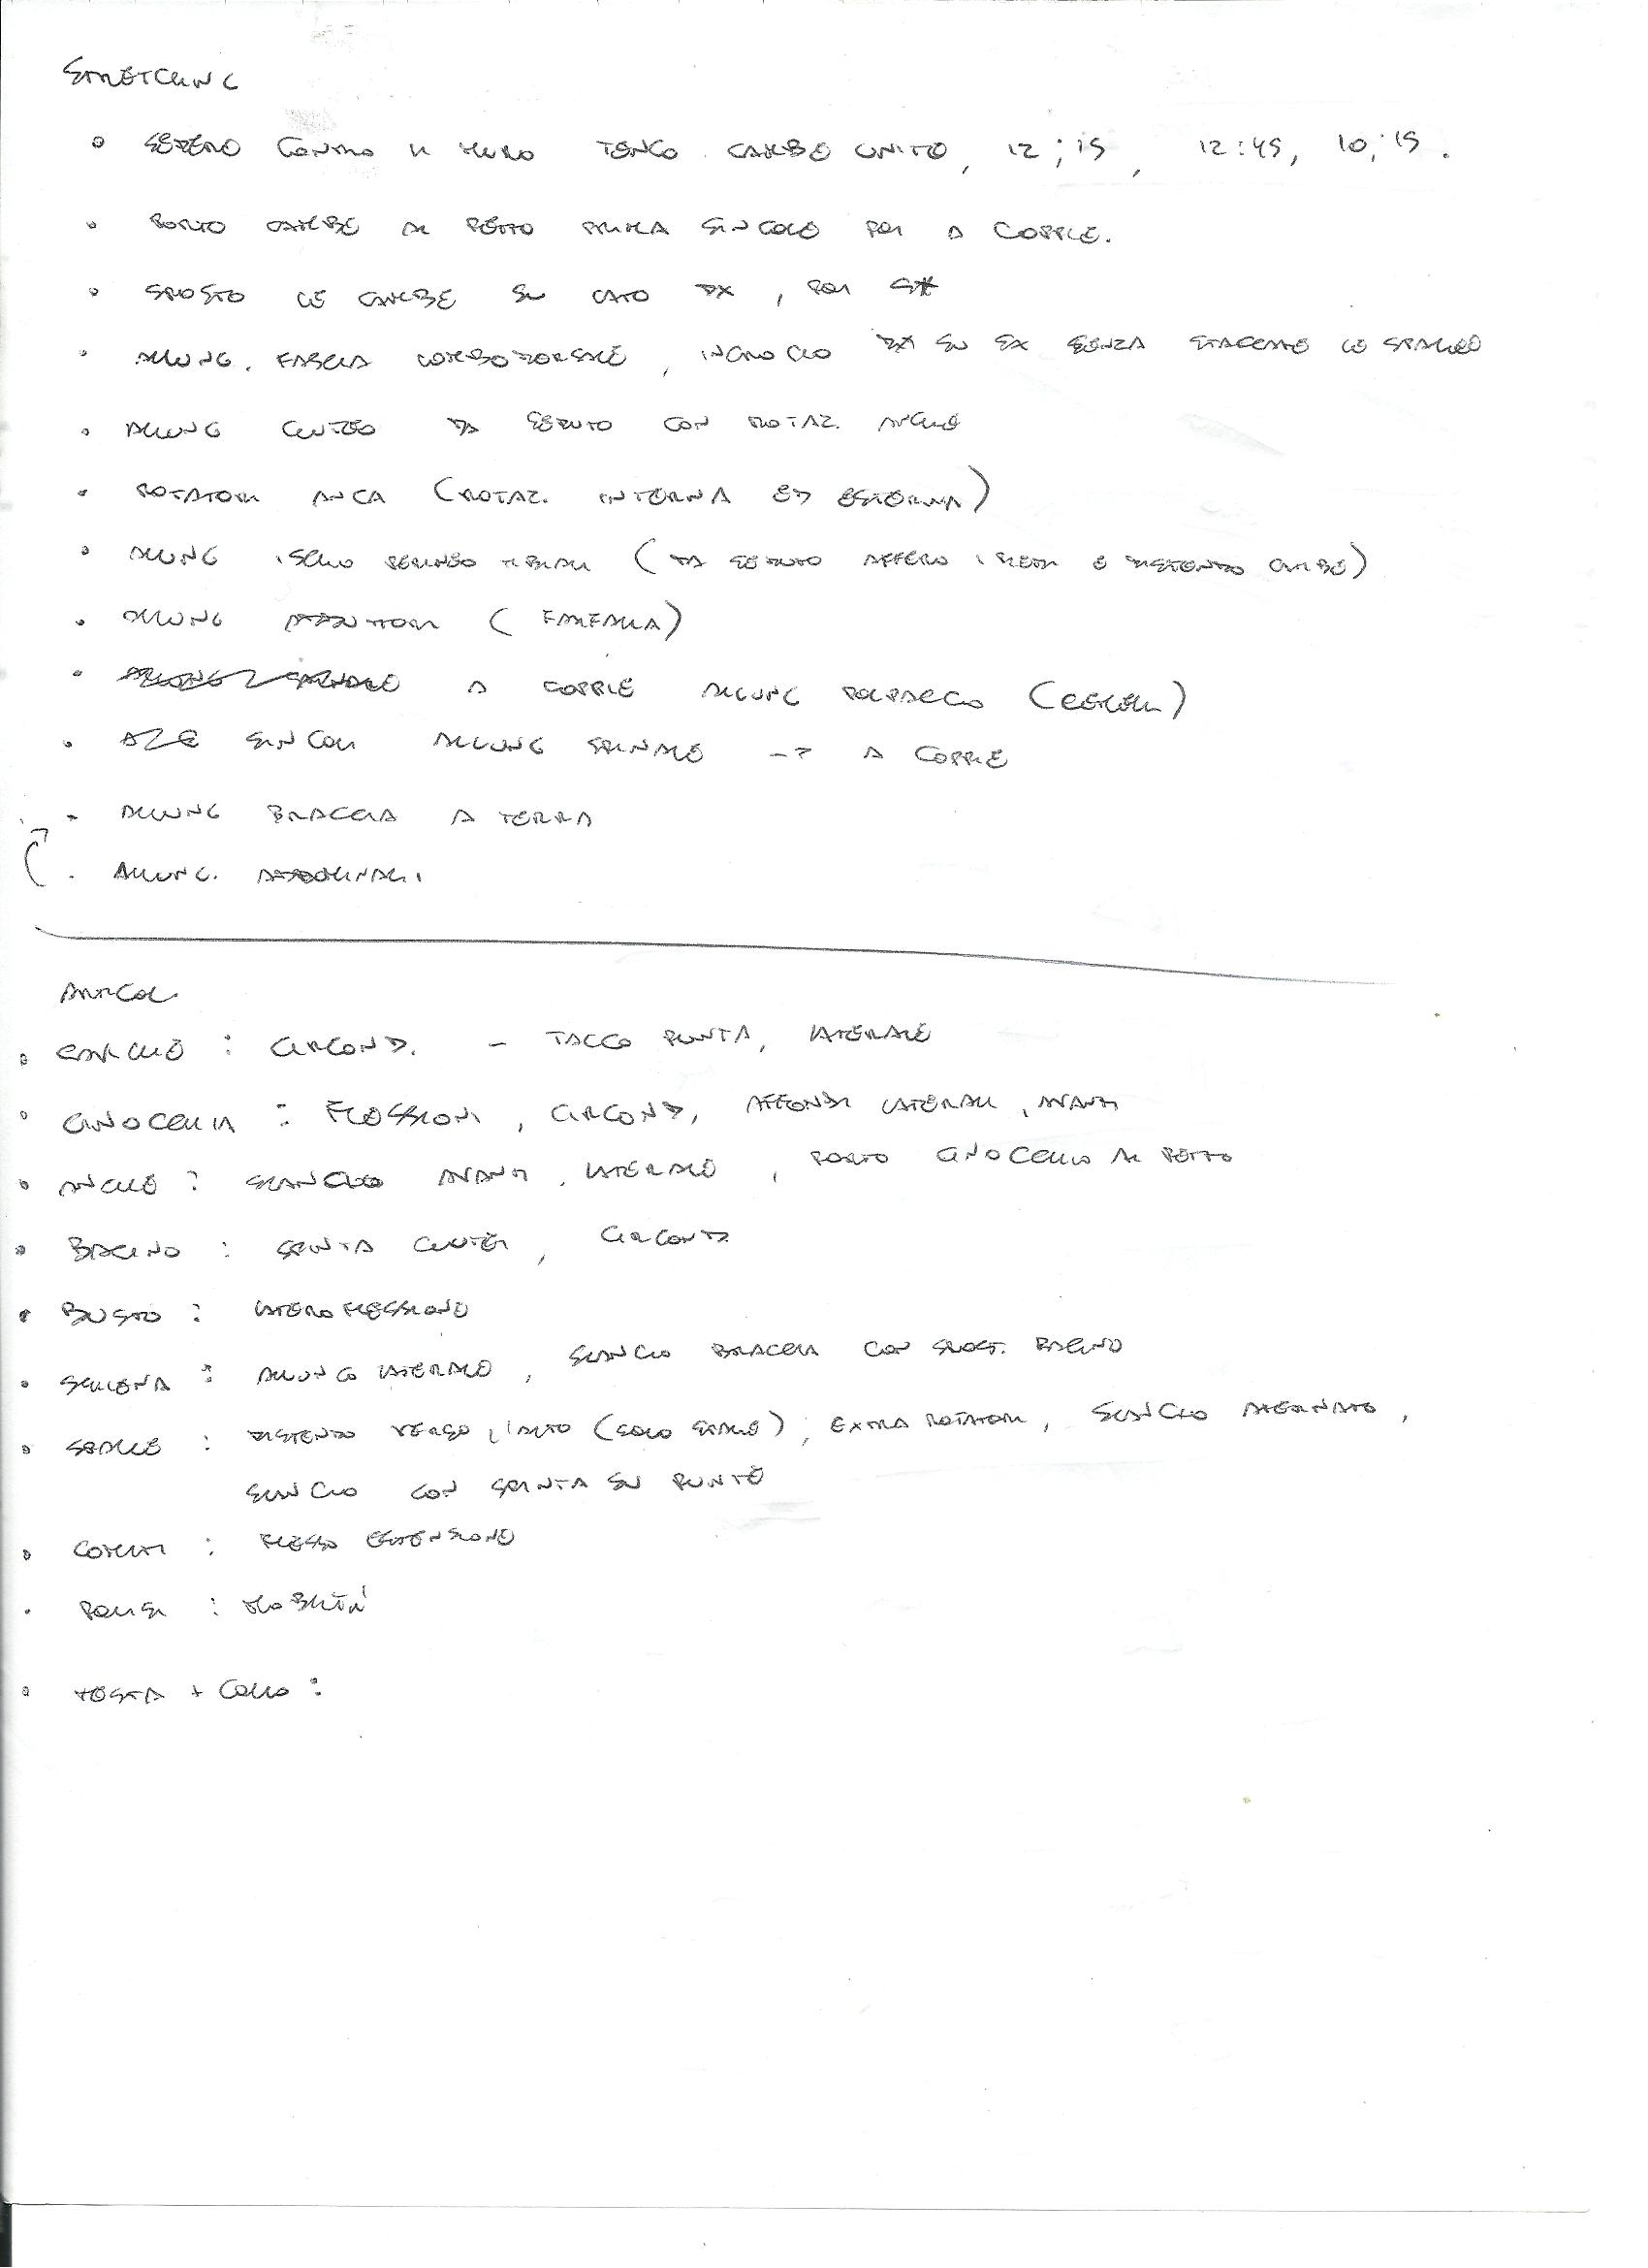 STRETCHING
• SEDERE CONTRO IL MURO TENGO GAMBE UNITE, 12;15, 12:45, 10;15.
• PORTO GAMBE AL PETTO PRIMA SINGOLE POI A COPPIE.
• SPOSTO LE GAMBE SU LATO DX, POI SX
• ALLUNG. FASCIA LOMBO DORSALE, INCROCIO DX SU SX SENZA STACCARE LE SPALLE
• ALLUNG GLUTEO DA SEDUTO CON ROTAZ. ANCHE
• ROTATORI ANCA (ROTAZ. INTERNA ED ESTERNA)
• ALLUNG ISCHIO PERINEO TIBIALI (DA SEDUTO AFFERRO I PIEDI E DISTENDO GAMBE)
• ALLUNG ADDUTTORI (FARFALLA)
• A COPPIE ALLUNG POLPACCIO
• SINGOLI ALLUNG SPINALE -> A COPPIE
• ALLUNG BRACCIA A TERRA
• ALLUNG. ADDOMINALI.
ARTICOL.
• CAVIGLIE : CIRCOND. - TACCO PUNTA, LATERALE
• GINOCCHIA : FLESSIONI, CIRCOND, AFFONDI LATERALI, AVANTI
• ANCHE : SLANCIO AVANTI, LATERALE, PORTO GINOCCHIO AL PETTO
• BACINO : SPINTA GLUTEI, CIRCOND
• BUSTO : LATERO FLESSIONE
• SCHIENA : ALLUNGO LATERALE, SLANCIO BRACCIA CON SPOST. BACINO
• SPALLE : DISTENDO VERSO L'ALTO (SOLO SPALLE), EXTRA ROTATORI, SLANCIO ALTERNATO,
SLANCIO CON SPINTA SU PUNTE
• GOMITI : FLESSO ESTENSIONE
• POLSI : MOBILITÀ
• TESTA + COLLO :